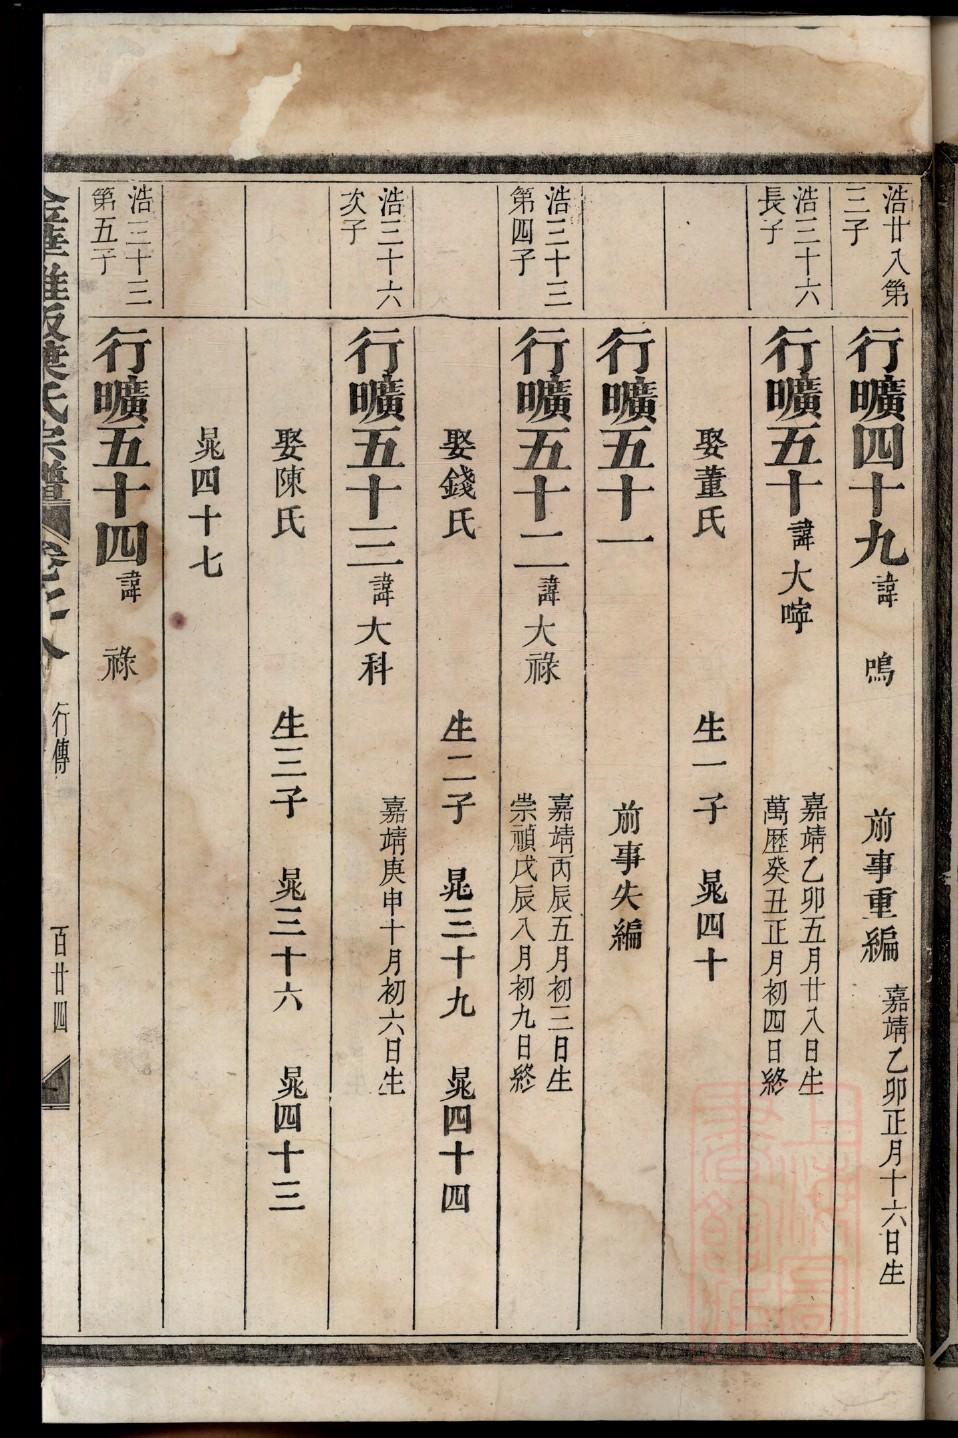 浩廿八第
三子
行曠四十九
諱 鳴
前事重編
嘉靖乙卯正月十六日生
浩三十六
長子
行曠五十
諱大嚀
嘉靖乙卯五月廿八日生
萬歷癸丑正月初四日終
娶董氏 生一子 晃四十
行曠五十一
前事失編
浩三十三
第四子
行曠五十二
諱大祿
嘉靖丙辰五月初三日生
崇禎戊辰八月初九日終
娶錢氏 生二子 晃三十九 晃四十四
浩三十六
次子
行曠五十三
諱大科
嘉靖庚申十月初六日生
娶陳氏 生三子 晃三十六 晃四十三
晃四十七
浩三十三
第五子
行曠五十四
諱 祿
氏宗譜 卷之八 行傳 百廿四